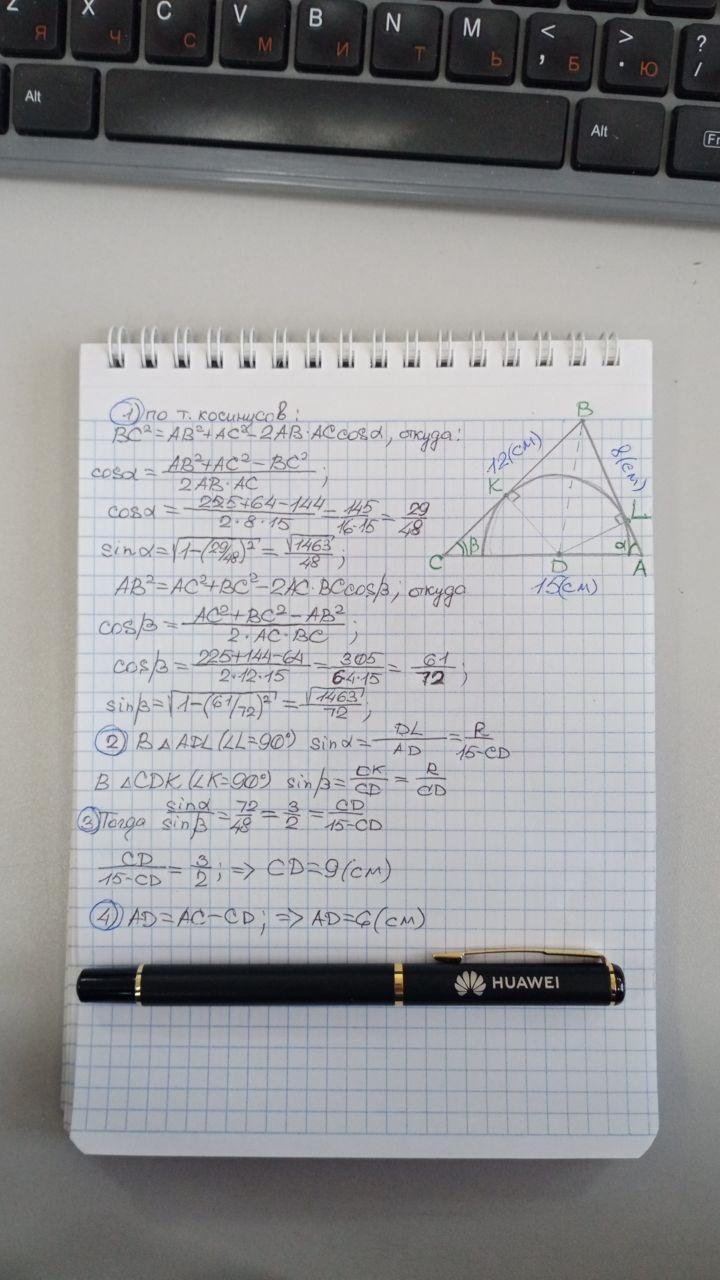 Z Я
X Ч
C С
V М
B И
N Т
M Ь
< , Б
> . Ю
? /
Alt
Alt
1) по т. косинусов:
BC²=AB²+AC²-2AB·ACcosα, откуда:
cosα=(AB²+AC²-BC²)/(2AB·AC);
cosα=(225+64-144)/(2·8·15)=145/(16·15)=29/48
sinα=√(1-(29/48)²)=√1463/48;
AB²=AC²+BC²-2AC·BCcosβ; откуда
cosβ=(AC²+BC²-AB²)/(2·AC·BC);
cosβ=(225+144-64)/(2·12·15)=305/(64·15)=61/72;
sinβ=√(1-(61/72)²)=√1463/72;
2) В △ADL (∠L=90°) sinα=DL/AD=R/(15-CD)
В △CDK (∠K=90°) sinβ=DK/CD=R/CD
3) Тогда sinα/sinβ=72/48=3/2=CD/(15-CD)
CD/(15-CD)=3/2; => CD=9(см)
4) AD=AC-CD; => AD=6(см)
B
12(см)
8(см)
K
L
C
β
D
α
A
15(см)
HUAWEI